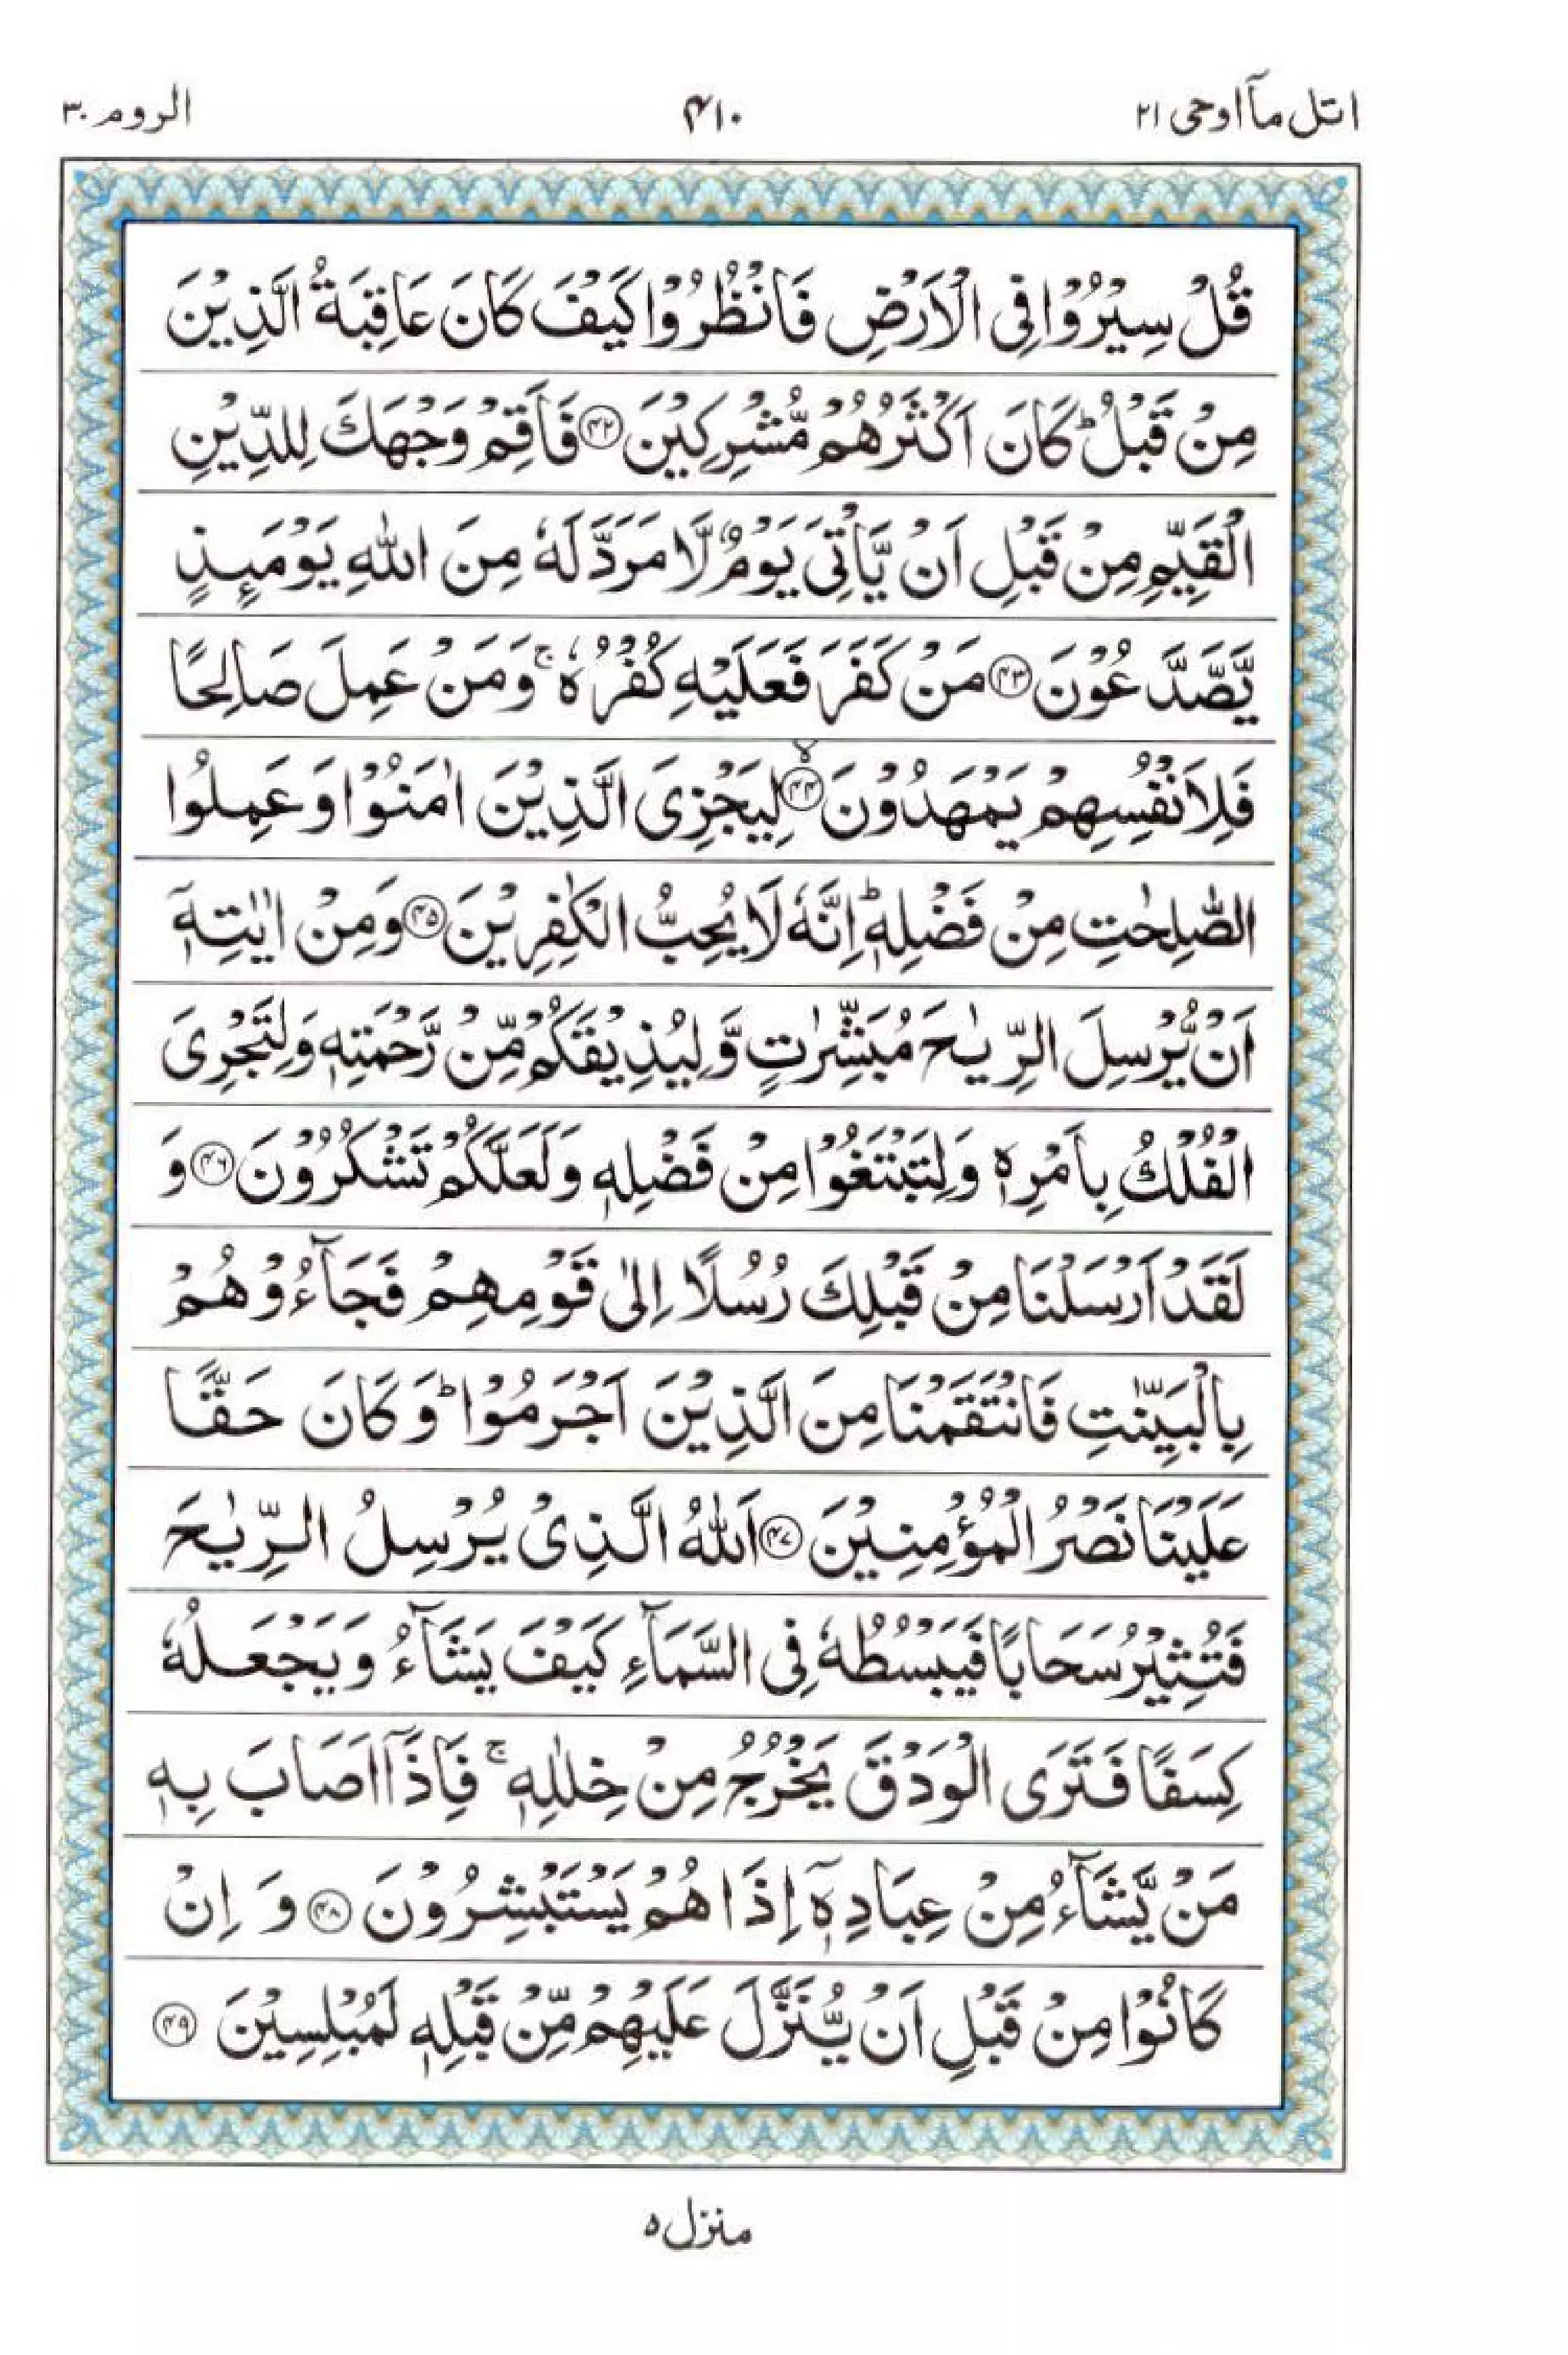 اتل مآ اوحی ۲۱
۴۱۰
الروم ۳۰
قُلْ سِيْرُوْا فِى الْاَرْضِ فَانْظُرُوْا كَيْفَ كَانَ عَاقِبَةُ الَّذِيْنَ
مِنْ قَبْلُ ؕ كَانَ اَكْثَرُهُمْ مُّشْرِكِيْنَ ۴۲ فَاَقِمْ وَجْهَكَ لِلدِّيْنِ
الْقَيِّمِ مِنْ قَبْلِ اَنْ يَّاْتِىَ يَوْمٌ لَّا مَرَدَّ لَهٗ مِنَ اللّٰهِ يَوْمَىِٕذٍ
يَّصَّدَّعُوْنَ ۴۳ مَنْ كَفَرَ فَعَلَيْهِ كُفْرُهٗ ۚ وَمَنْ عَمِلَ صَالِحًا
فَلِاَنْفُسِهِمْ يَمْهَدُوْنَ ۙ۴۴ لِيَجْزِىَ الَّذِيْنَ اٰمَنُوْا وَعَمِلُوا
الصّٰلِحٰتِ مِنْ فَضْلِهٖ ؕ اِنَّهٗ لَا يُحِبُّ الْكٰفِرِيْنَ ۴۵ وَمِنْ اٰيٰتِهٖۤ
اَنْ يُّرْسِلَ الرِّيٰحَ مُبَشِّرٰتٍ وَّلِيُذِيْقَكُمْ مِّنْ رَّحْمَتِهٖ وَلِتَجْرِىَ
الْفُلْكُ بِاَمْرِهٖ وَلِتَبْتَغُوْا مِنْ فَضْلِهٖ وَلَعَلَّكُمْ تَشْكُرُوْنَ ۴۶ وَ
لَقَدْ اَرْسَلْنَا مِنْ قَبْلِكَ رُسُلًا اِلٰى قَوْمِهِمْ فَجَآءُوْهُمْ
بِالْبَيِّنٰتِ فَانْتَقَمْنَا مِنَ الَّذِيْنَ اَجْرَمُوْا ؕ وَكَانَ حَقًّا
عَلَيْنَا نَصْرُ الْمُؤْمِنِيْنَ ۴۷ اَللّٰهُ الَّذِىْ يُرْسِلُ الرِّيٰحَ
فَتُثِيْرُ سَحَابًا فَيَبْسُطُهٗ فِى السَّمَآءِ كَيْفَ يَشَآءُ وَيَجْعَلُهٗ
كِسَفًا فَتَرَى الْوَدْقَ يَخْرُجُ مِنْ خِلٰلِهٖ ۚ فَاِذَاۤ اَصَابَ بِهٖ
مَنْ يَّشَآءُ مِنْ عِبَادِهٖۤ اِذَا هُمْ يَسْتَبْشِرُوْنَ ۴۸ وَ اِنْ
كَانُوْا مِنْ قَبْلِ اَنْ يُّنَزَّلَ عَلَيْهِمْ مِّنْ قَبْلِهٖ لَمُبْلِسِيْنَ ۴۹
منزل ۵